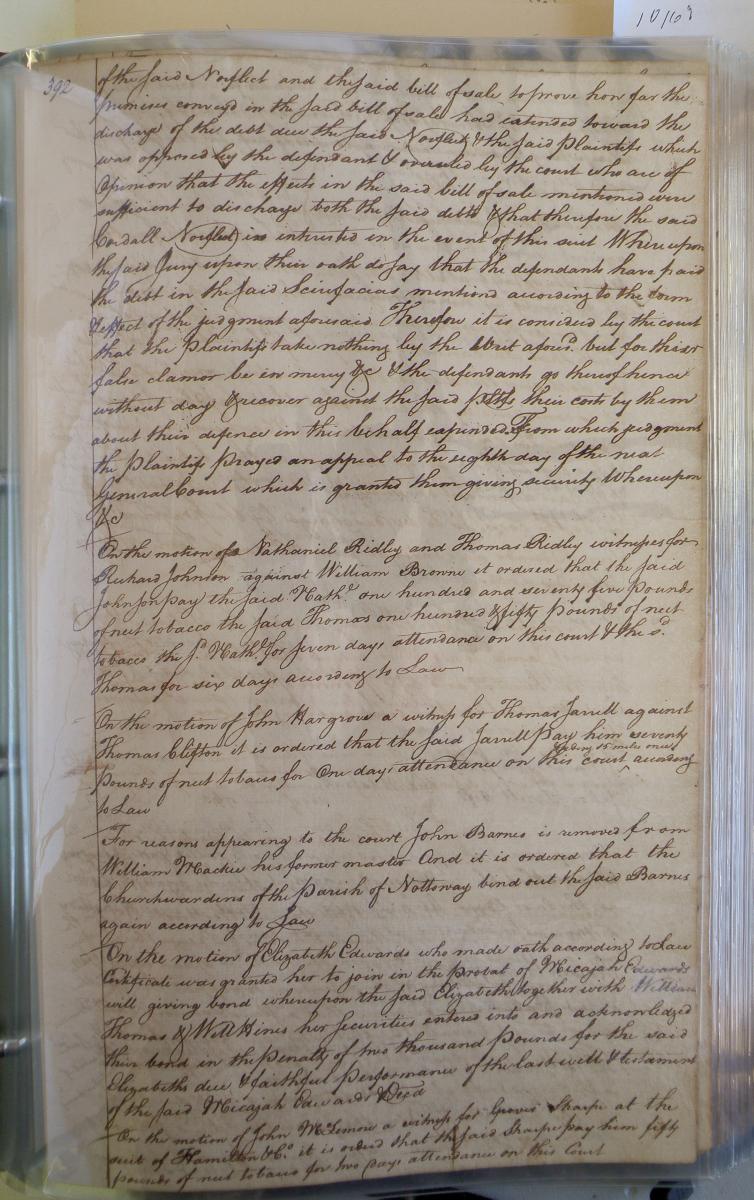 10/103
392
of the said Norflect and the said bill of sale to prove how far the
premises conveyd in the said bill of sale had extended toward the
discharge of the debt due the said Norflect & the said plaintifs which
was opposed by the defendant & overruled by the court who are of
Opinion that the effects in the said bill of sale mentioned were
sufficient to discharge both the said debts & that therefore the said
Cordall Norflect is intrested in the event of this suit Whereupon
the said Jury upon their oath do say that the defendants have paid
the debt in the said Scirefacias mentiond according to the form
& effect of the judgment aforesaid Therefore it is considd by the court
that the Plaintifs take nothing by the Writ afores'd. but for their
false clamor be in mercy &c & the defendants go thereof hence
without day & recover against the said pltfs their costs by them
about their defence in this behalf expended From which judgment
the plaintifs prayed an appeal to the eighth day of the next
General Court which is granted them giving security Whereupon
&c
On the motion of Nathaniel Ridley and Thomas Ridley witnesses for
Richard Johnson against William Browne it ordered that the said
Johnson pay the said Nath.l one hundred and seventy five pounds
of neet tobacco the said Thomas one hundred & fifty pounds of neet
tobacco the s.d Nath.l for seven days attendance on this court & the s.d
Thomas for six days according to Law
On the motion of John Hargrove a witness for Thomas Jarrell against
Thomas Clifton it is ordered that the said Jarrell pay him seventy
pounds of neet tobacco for One days attendance on this court according
to Law
For reasons appearing to the court John Barnes is removed from
William Mackie his former master And it is ordered that the
Churchwardens of the Parish of Nottoway bind out the said Barnes
again according to Law
On the motion of Elizabeth Edwards who made oath according to Law
Certificate was granted her to join in the probat of Micajah Edwards
will giving bond whereupon the said Elizabeth together with William
Thomas & Will Hines her securities entered into and acknowledged
their bond in the penalty of two thousand pounds for the said
Elizabeths due & faithful performance of the last will & testament
of the said Micajah Edwards Deced
On the motion of John McLemore a witness for Groves Sharpe at the
suit of Hamilton & Co. it is ordered that the said Sharpe pay him fifty
pounds of neet tobacco for two days attendance on this Court